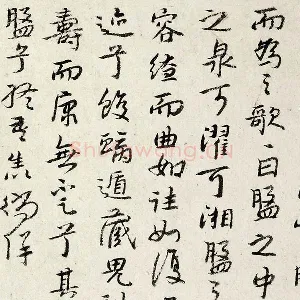 而為之歌曰盤之中
之泉可濯可湘盤之
容繚而曲如往如復
迹兮蛟螭遁藏鬼
壽而康無不足兮
盤兮終吾生徜徉